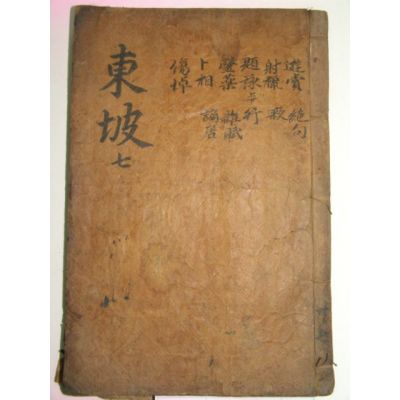 遊賞 絶句
射獵 歌
題詠 与行
醫藥 雜賦
卜相 謫居
傷悼
東坡 七